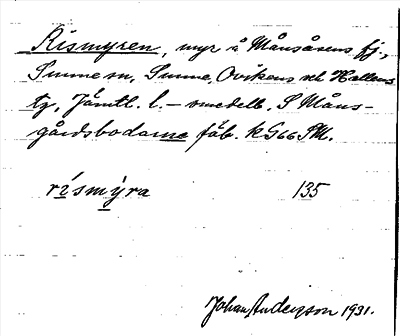 Rismyren, myr å Månsåsens fj.,
Sunne sn, Sunne, Ovikens och Hallens
tg, Jämtl. l. – omedelb. S Måns-
gårdsbodarne fäb. k G66 SM.
rismýra 135
Johan Andersson 1931.